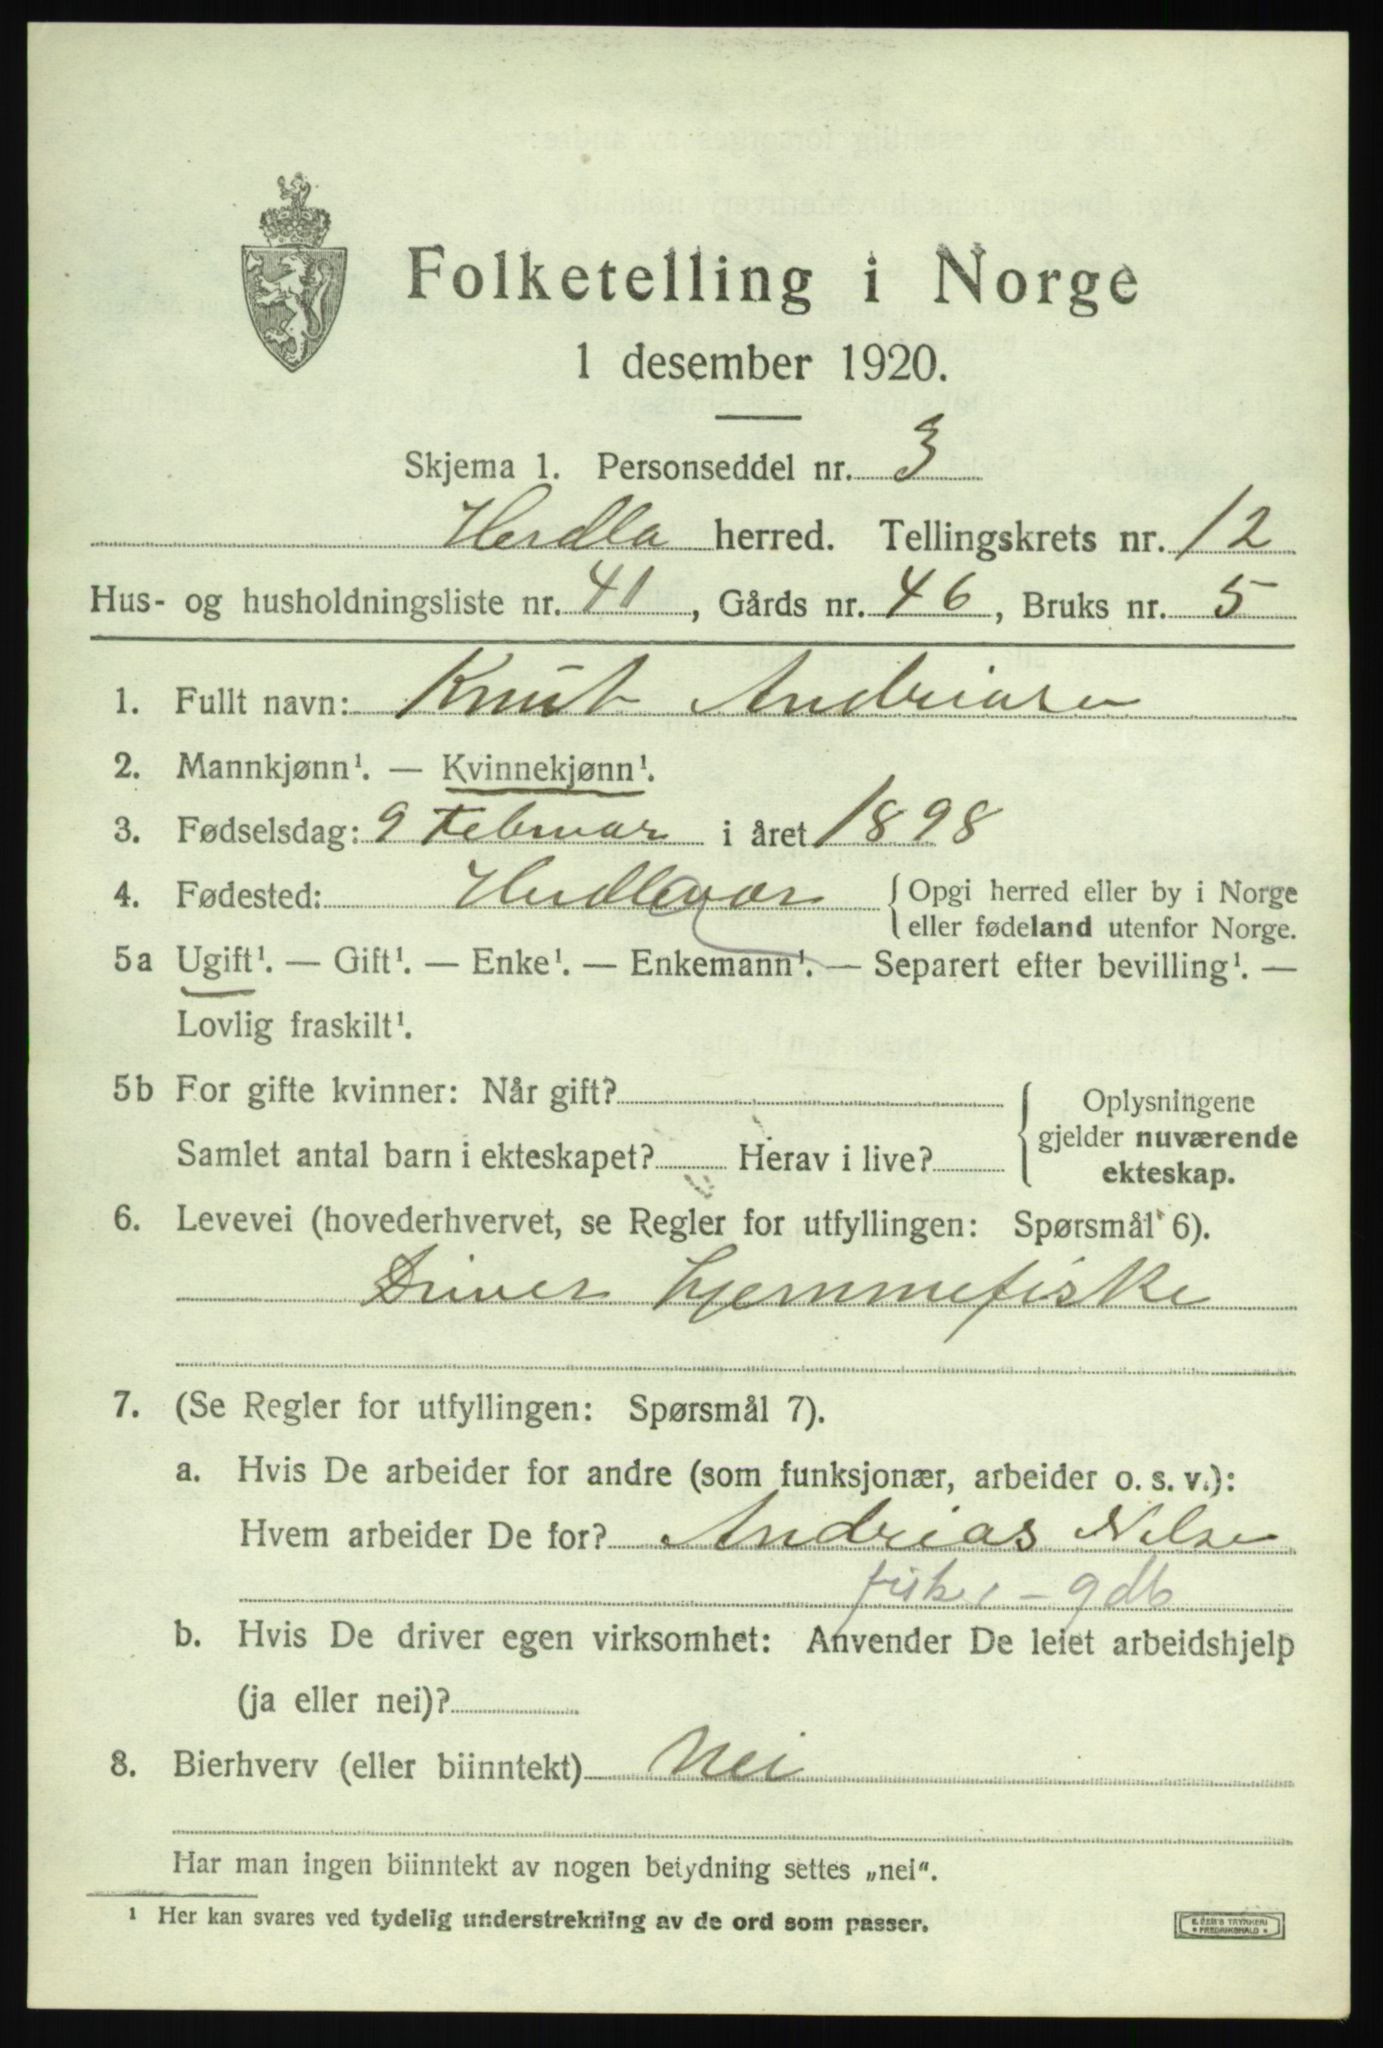 Folketelling i Norge
1 desember 1920.
Skjema 1. Personseddel nr. 3
Herdla herred. Tellingskrets nr. 12
Hus- og husholdningsliste nr. 41, Gårds nr. 46, Bruks nr. 5
1. Fullt navn: Knut Andriasen
2. Mannkjønn¹. — Kvinnekjønn¹.
3. Fødselsdag: 9 Februar i året 1898
4. Fødested: Herdlevær { Opgi herred eller by i Norge
eller fødeland utenfor Norge.
5a Ugift¹. — Gift¹. — Enke¹. — Enkemann¹. — Separert efter bevilling¹. —
Lovlig fraskilt¹.
5b For gifte kvinner: Når gift? { Oplysningene
gjelder nuværende
Samlet antal barn i ekteskapet? Herav i live? ekteskap.
6. Levevei (hovederhvervet, se Regler for utfyllingen: Spørsmål 6).
Driver hjemmefiske
7. (Se Regler for utfyllingen: Spørsmål 7).
a. Hvis De arbeider for andre (som funksjonær, arbeider o. s. v.):
Hvem arbeider De for? Andrias Nilse
fisker - gdb
b. Hvis De driver egen virksomhet: Anvender De leiet arbeidshjelp
(ja eller nei)?
8. Bierhverv (eller biinntekt) Nei
Har man ingen biinntekt av nogen betydning settes „nei“.
¹ Her kan svares ved tydelig understrekning av de ord som passer.
TRYKKERI
FREDRIKSHALD